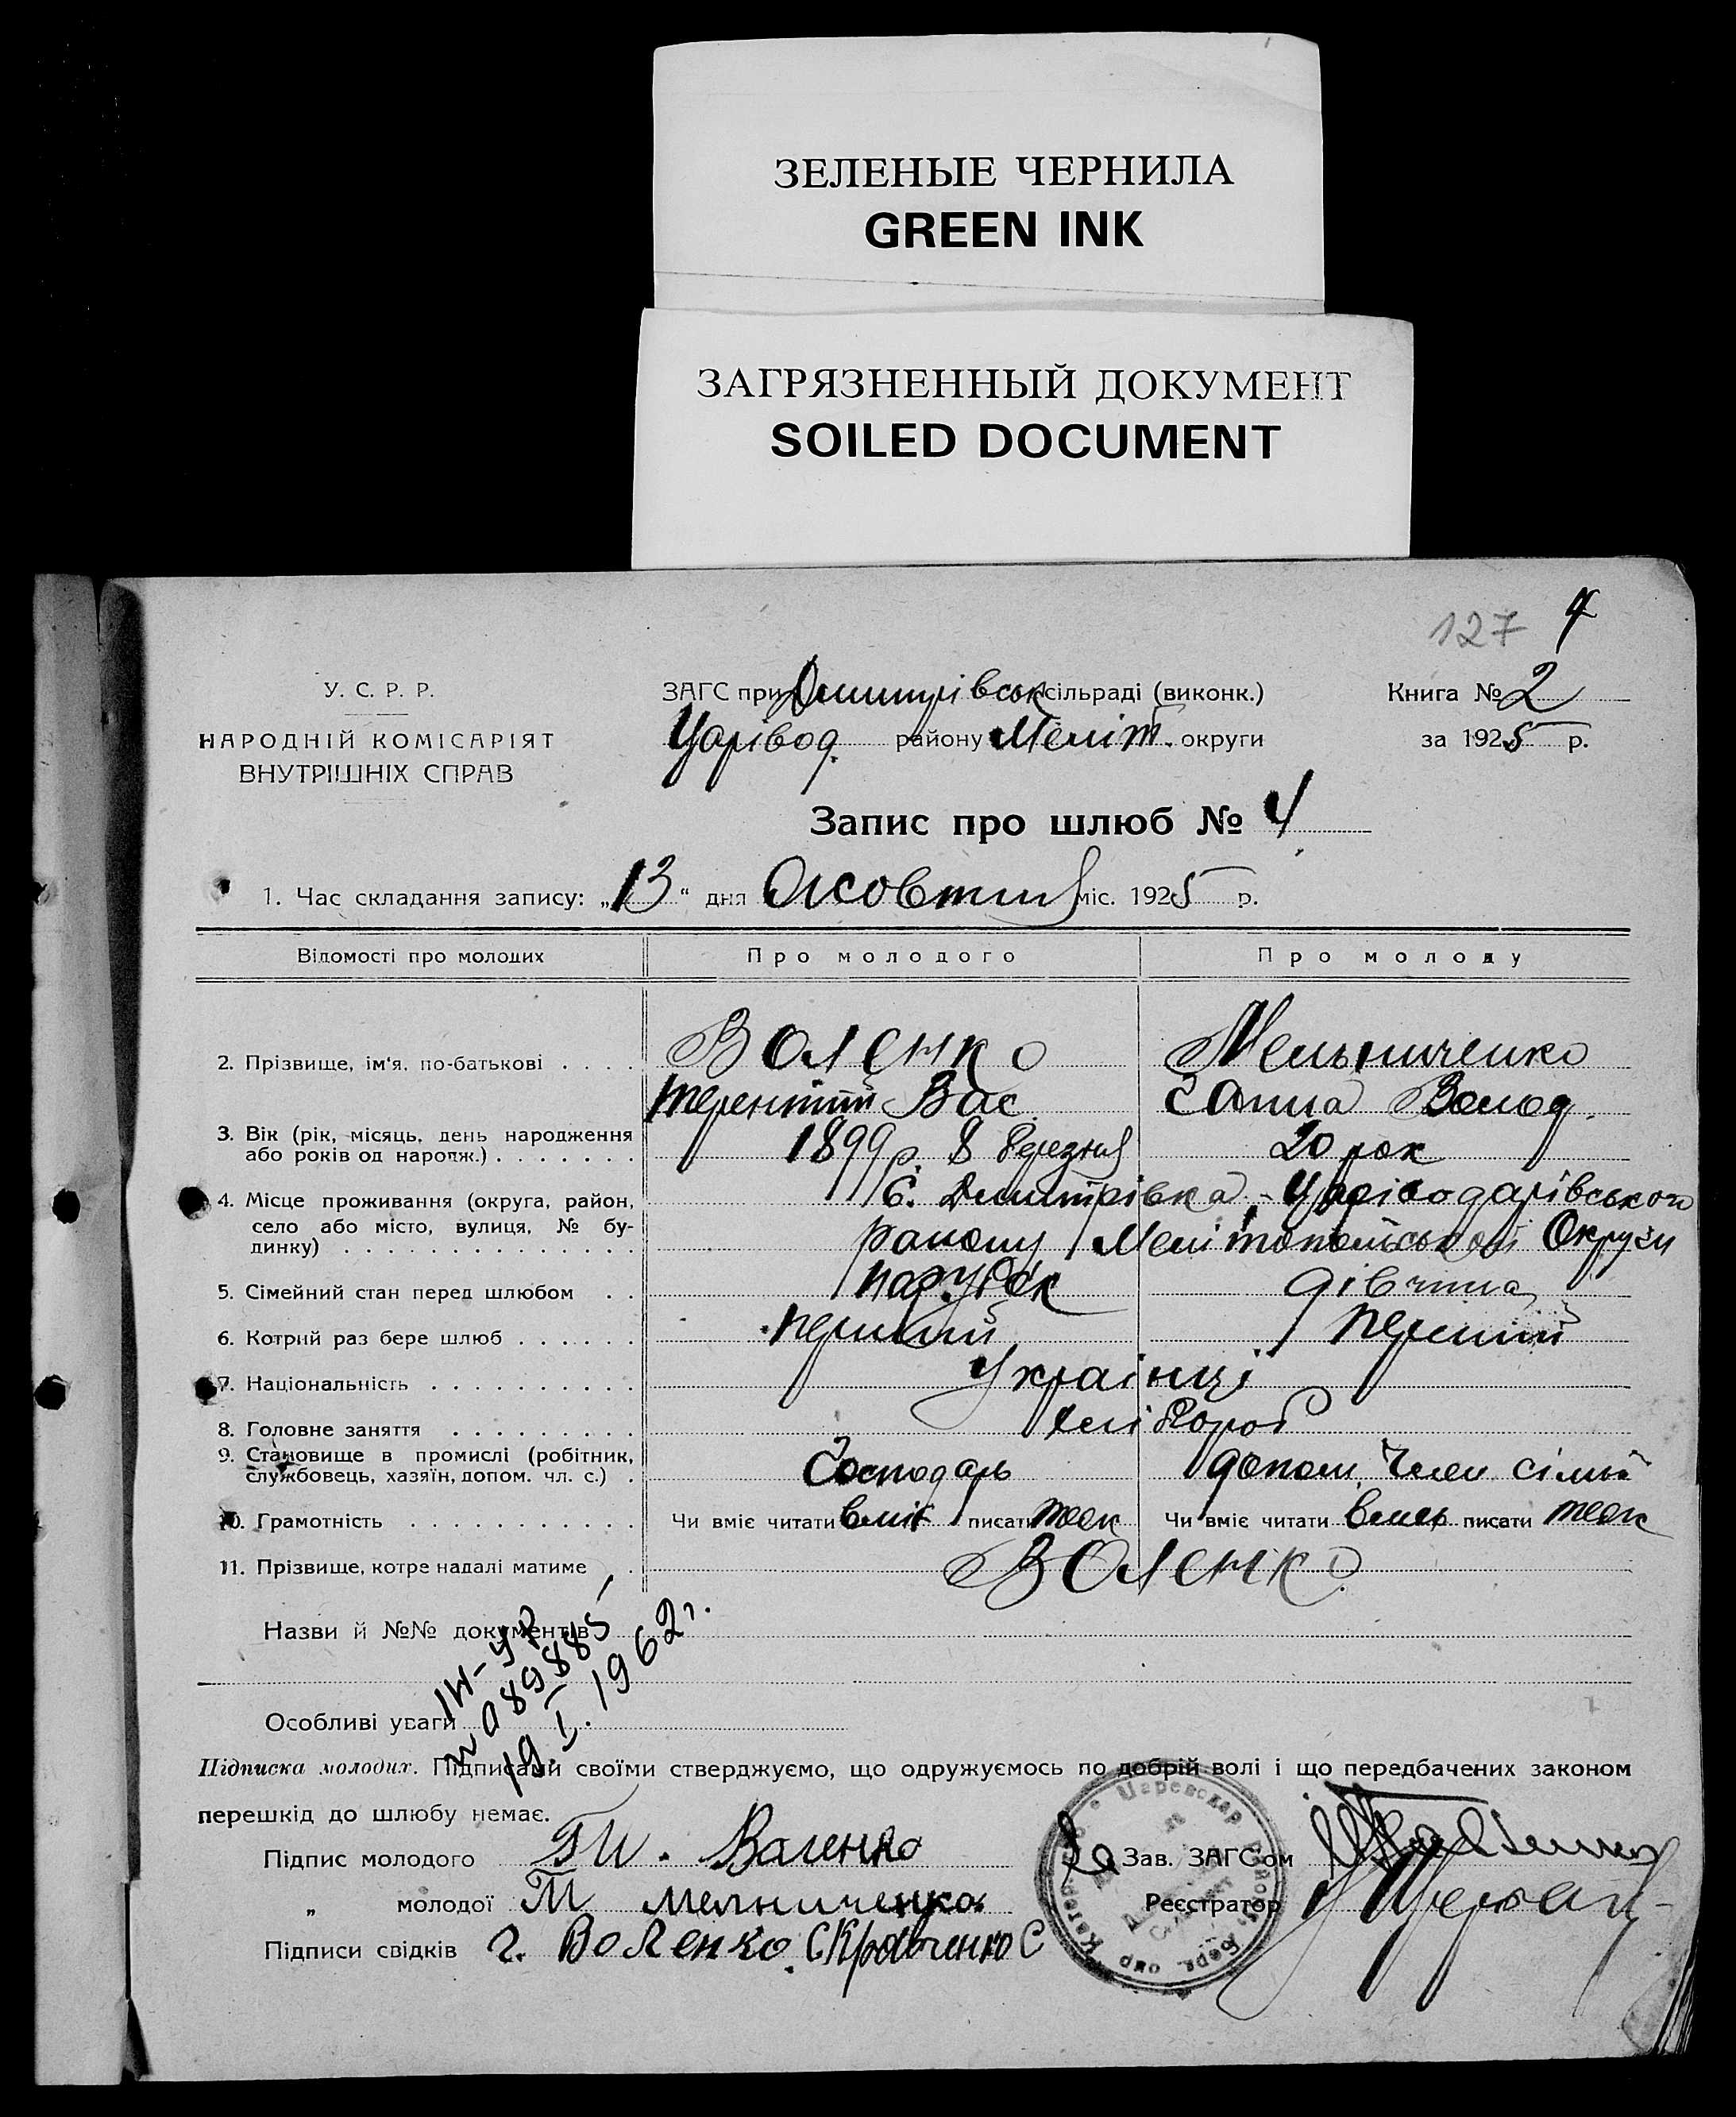 ЗЕЛЕНЫЕ ЧЕРНИЛА
GREEN INK
ЗАГРЯЗНЕННЫЙ ДОКУМЕНТ
SOILED DOCUMENT
127 4
У. С. Р. Р.
НАРОДНІЙ КОМІСАРІЯТ
ВНУТРІШНІХ СПРАВ
ЗАГС при Дмитрівськ сільраді (виконк.)
Царівод. району Меліт. округи
Книга № 2
за 1925 р.
Запис про шлюб № 4
1. Час складання запису: „13“ дня Жовтня міс. 1925 р.
Відомості про молодих Про молодого Про молоду
2. Прізвище, ім'я, по-батькові Воленко Мельниченко
Терентій Вас. Ганна Волод.
3. Вік (рік, місяць, день народження або років од народж.) 1899 р. 8 березня 20 рок
4. Місце проживання (округа, район, село або місто, вулиця, № будинку) С. Дмитрівка, Царіводарівського
району Мелітопольської Округи
5. Сімейний стан перед шлюбом парубок дівчина
6. Котрий раз бере шлюб перший перший
7. Національність Українці
8. Головне заняття хлібороб
9. Становище в промислі (робітник, службовець, хазяїн, допом. чл. с.) Господарь допом. член сімьї
10. Грамотність Чи вміє читати вміє писати теж Чи вміє читати вміє писати теж
11. Прізвище, котре надалі матиме Воленко
Назви й №№ документів
ІИ-УР
№ 089885
19.I.1962г.
Особливі уваги
Підписка молодих. Підписами своїми стверджуємо, що одружуємось по добрій волі і що передбачених законом
перешкід до шлюбу немає.
Підпис молодого Воленко Зав. ЗАГС'ом
„ молодої Мелниченко Реєстратор
Підписи свідків Г. Воленко. С Кравченко С